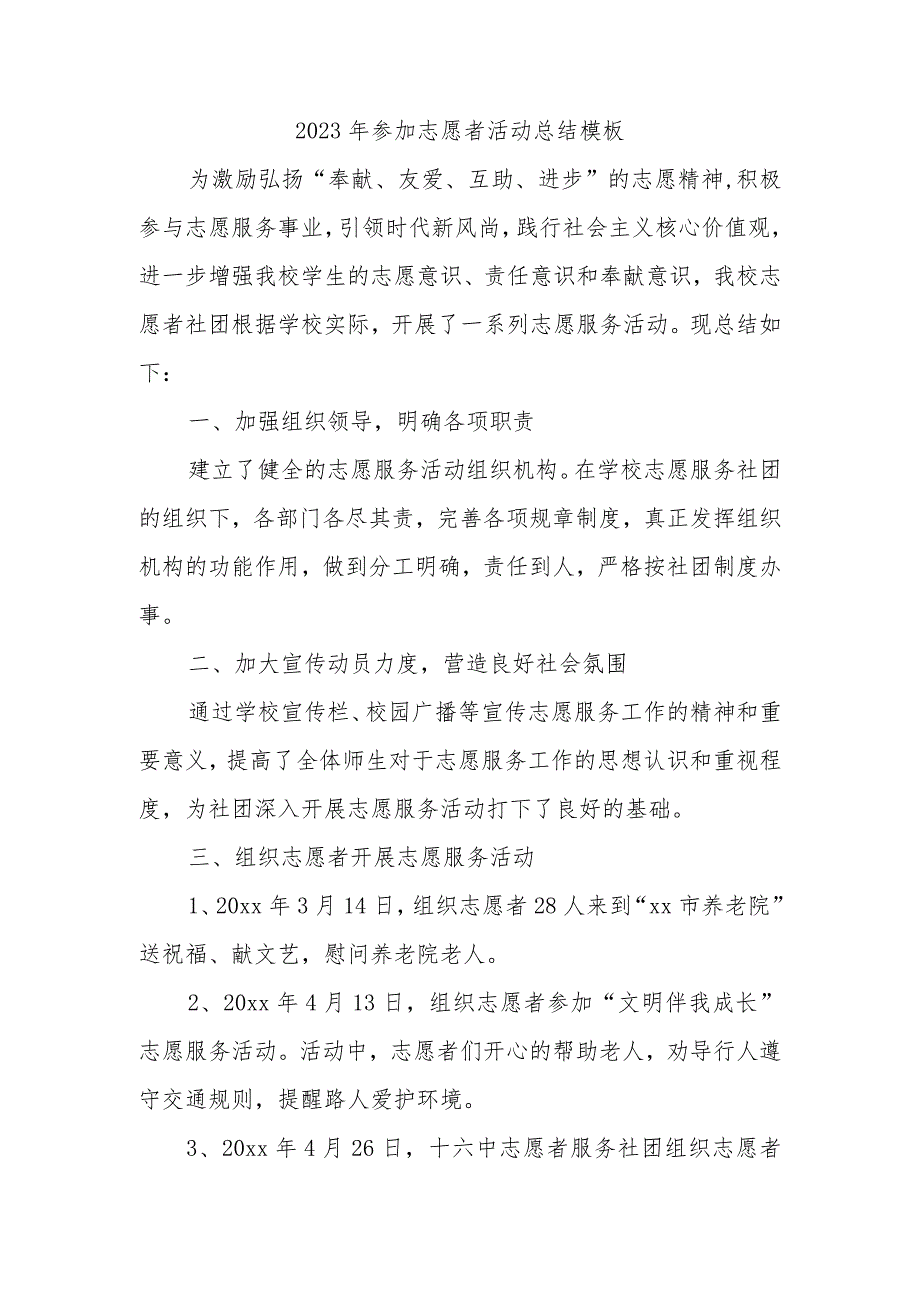 2023 年参加志愿者活动总结模板
为激励弘扬“奉献、友爱、互助、进步”的志愿精神,积极
参与志愿服务事业,引领时代新风尚,践行社会主义核心价值观，
进一步增强我校学生的志愿意识、责任意识和奉献意识，我校志
愿者社团根据学校实际，开展了一系列志愿服务活动。现总结如
下：
一、加强组织领导，明确各项职责
建立了健全的志愿服务活动组织机构。在学校志愿服务社团
的组织下，各部门各尽其责，完善各项规章制度，真正发挥组织
机构的功能作用，做到分工明确，责任到人，严格按社团制度办
事。
二、加大宣传动员力度，营造良好社会氛围
通过学校宣传栏、校园广播等宣传志愿服务工作的精神和重
要意义,提高了全体师生对于志愿服务工作的思想认识和重视程
度，为社团深入开展志愿服务活动打下了良好的基础。
三、组织志愿者开展志愿服务活动
1、20xx 年 3 月 14 日,组织志愿者 28 人来到“xx 市养老院”
送祝福、献文艺，慰问养老院老人。
2、20xx 年 4 月 13 日，组织志愿者参加“文明伴我成长”
志愿服务活动。活动中，志愿者们开心的帮助老人，劝导行人遵
守交通规则，提醒路人爱护环境。
3、20xx 年 4 月 26 日，十六中志愿者服务社团组织志愿者